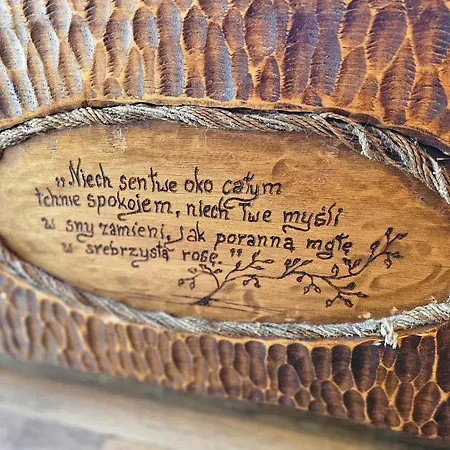 „Niech sentwe oko całym
tchnie spokojem, niech Twe myśli
w sny zamieni, jak poranną mgłę
w srebrzystą rosę."